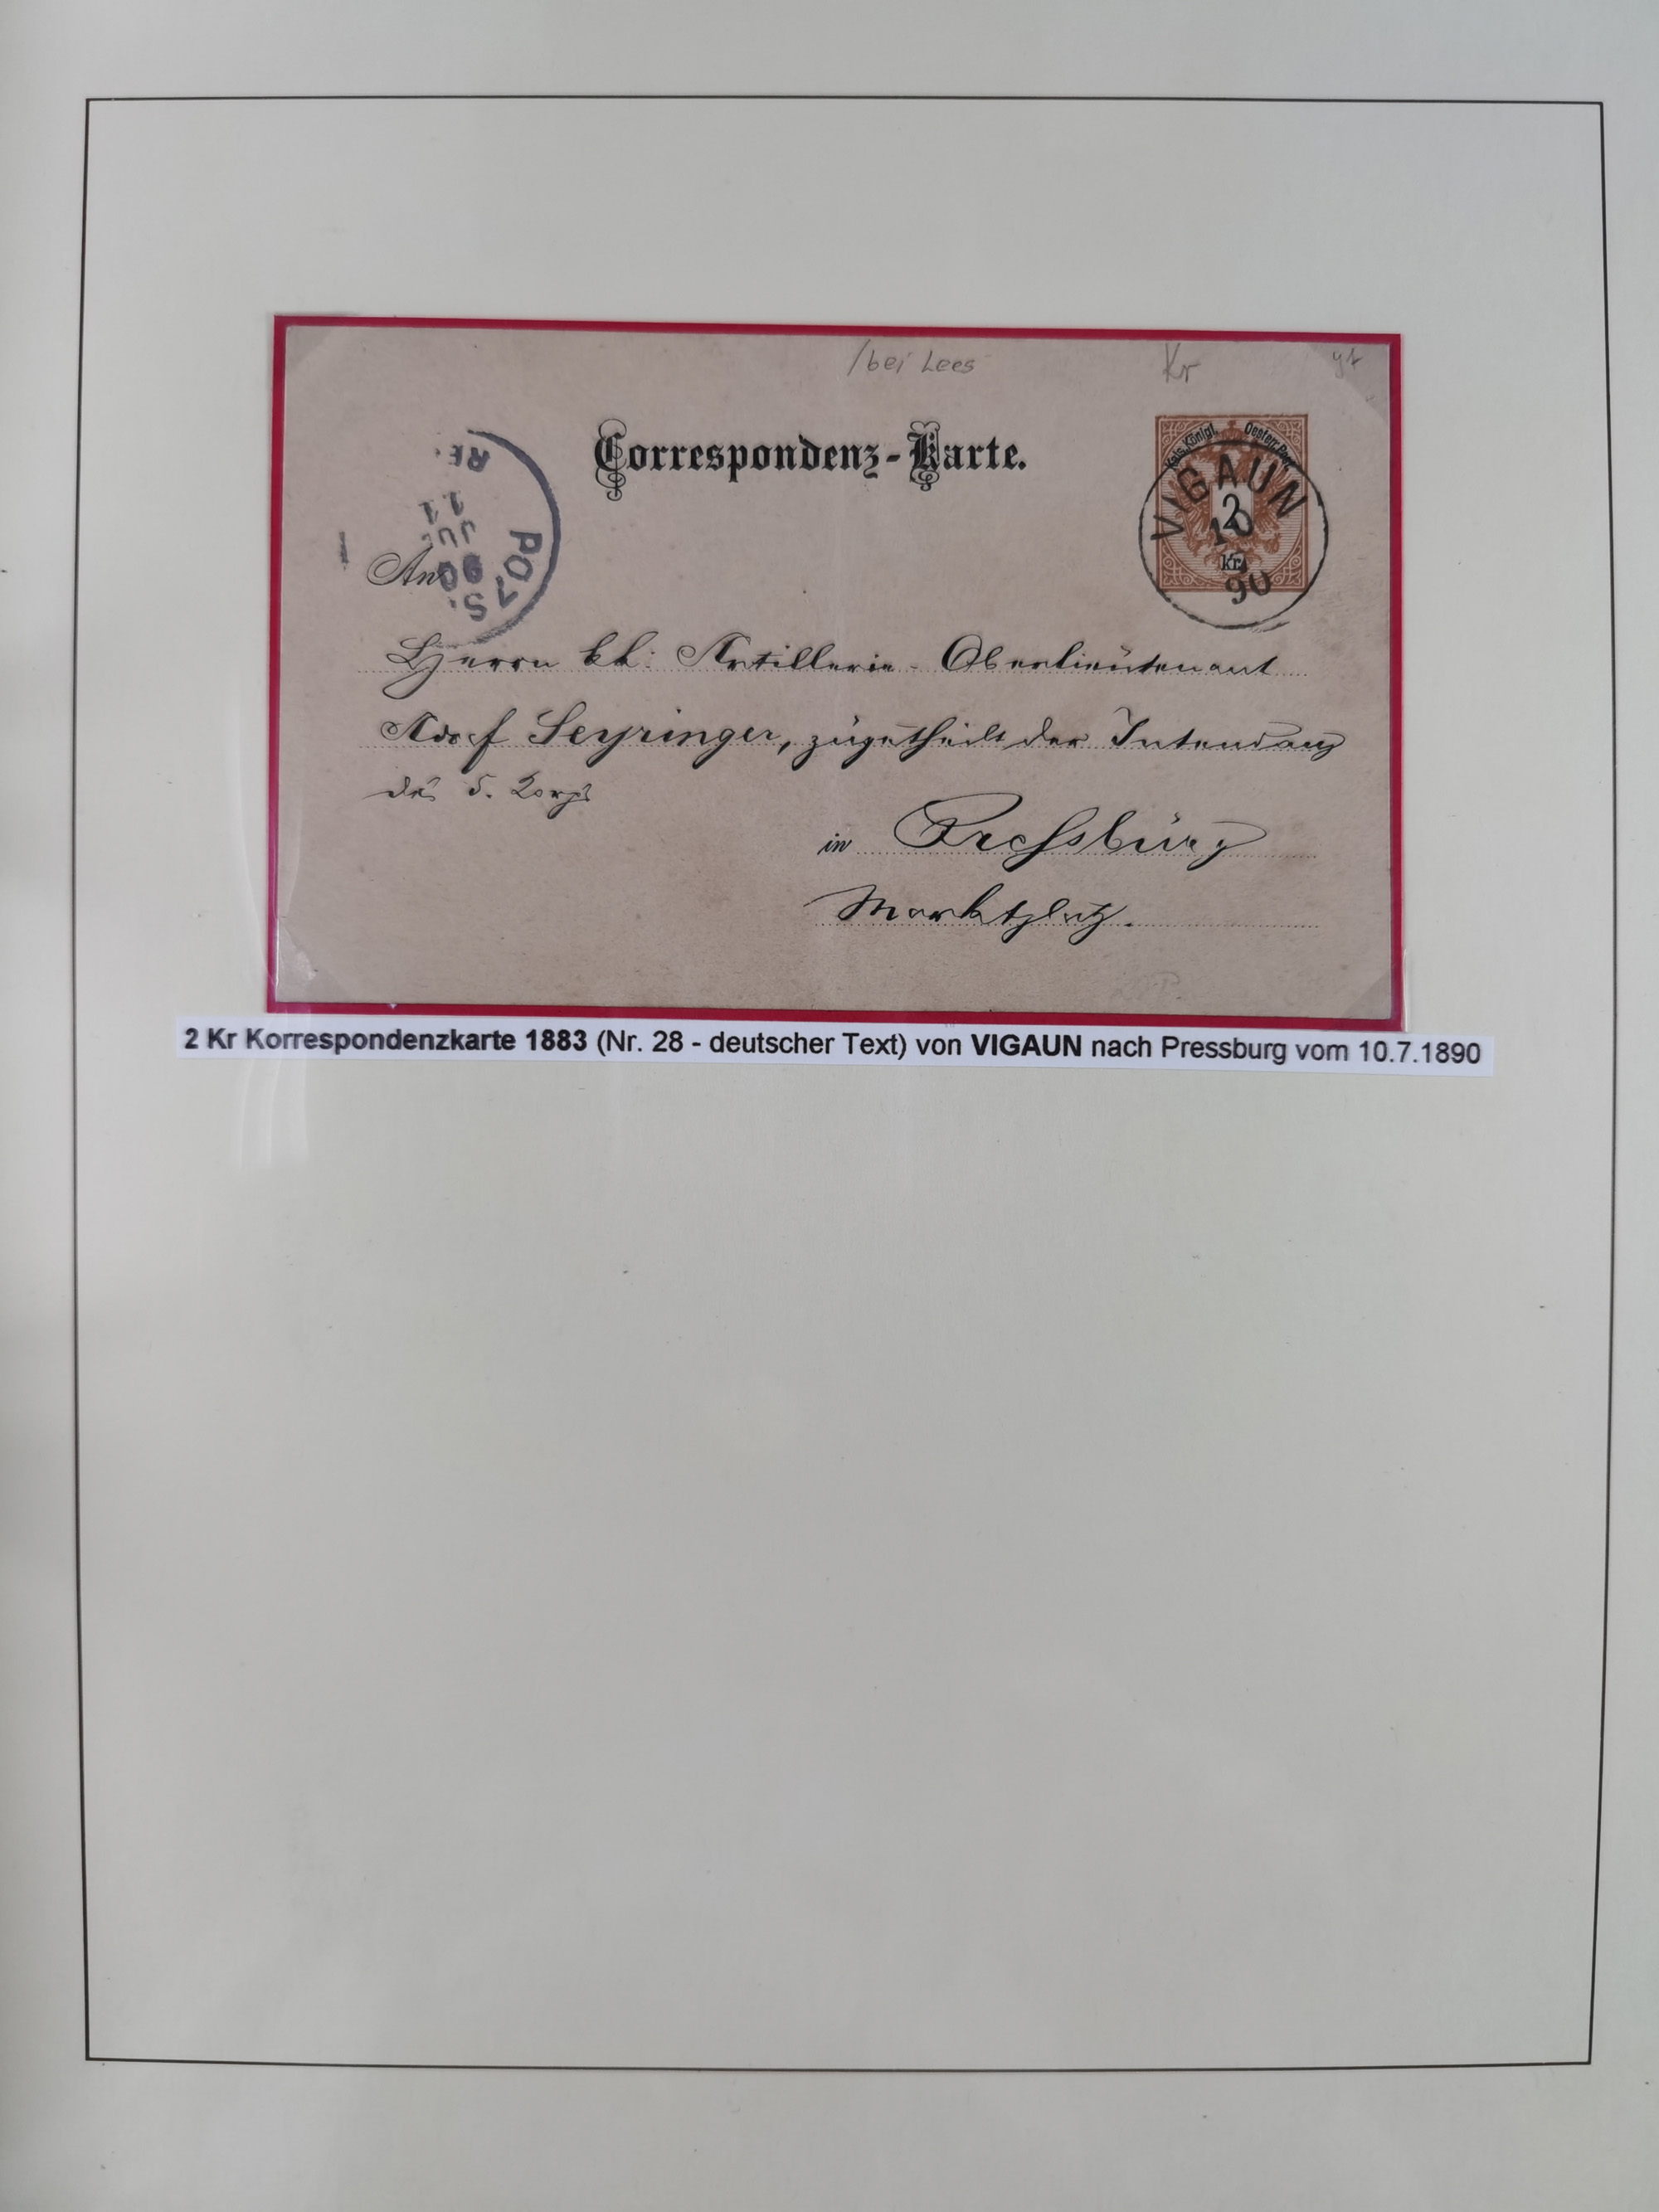 /bei Lees Kr
Correspondenz-Karte.
Kais. Königl. Oesterr. Post
2
kr.
VIGAUN
10
7
90
RE
POZS
11
JUL
90
An
Herrn kk: Artillerie-Oberlieutenant
Adolf Seyringer, zugetheilt der Intendanz
des 5. Korps
in Pressburg
Marktplatz.
2 Kr Korrespondenzkarte 1883 (Nr. 28 - deutscher Text) von VIGAUN nach Pressburg vom 10.7.1890